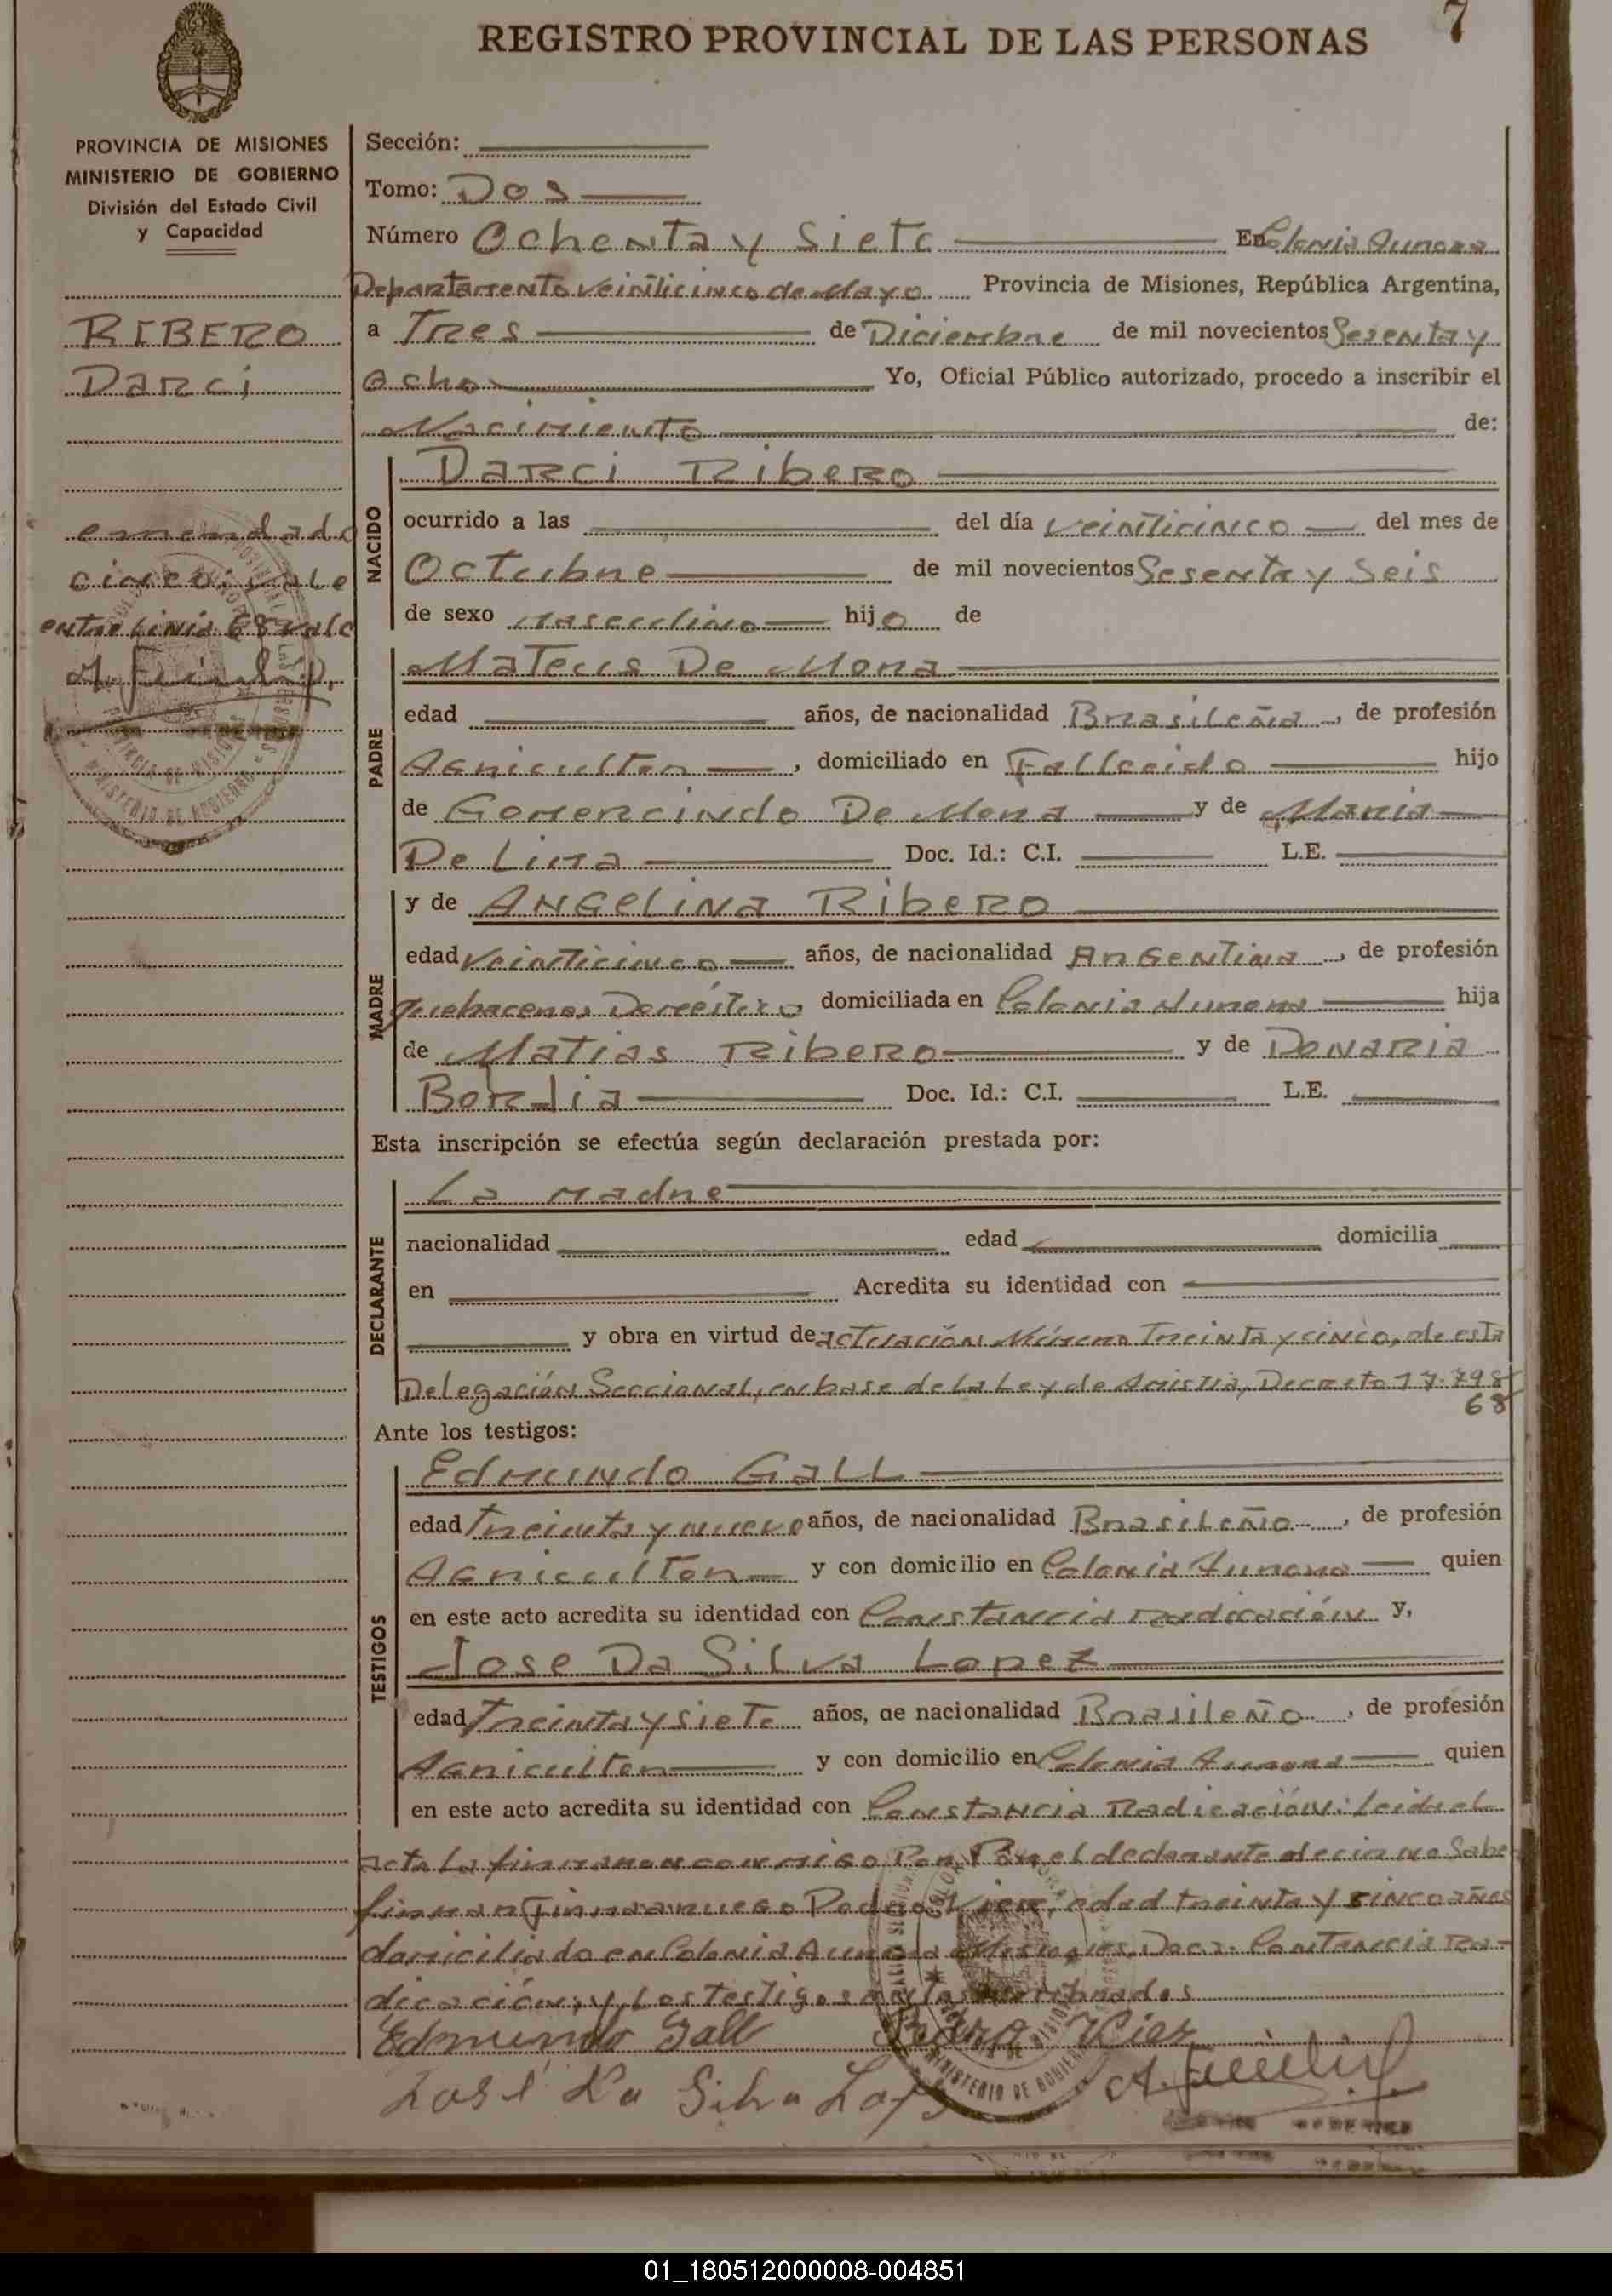 7
REGISTRO PROVINCIAL DE LAS PERSONAS
PROVINCIA DE MISIONES
MINISTERIO DE GOBIERNO
División del Estado Civil
y Capacidad
RIBERO
Darci
emendado
cinco: vale
entre linia 68 vale
Sección:
Tomo: Dos
Número Ochenta y Siete En Colonia Aurora
Departamento Veinticinco de Mayo Provincia de Misiones, República Argentina,
a Tres de Diciembre de mil novecientos Sesenta y
Ocho Yo, Oficial Público autorizado, procedo a inscribir el
Nacimiento de:
NACIDO
Darci Ribero
ocurrido a las del día veinticinco del mes de
Octubre de mil novecientos Sesenta y Seis
de sexo masculino hijo de
PADRE
Mateus De Mora
edad años, de nacionalidad Brasileña, de profesión
Agricultor, domiciliado en Fallecido hijo
de Gomercindo De Mora y de Maria
De Lima Doc. Id.: C.I. L.E.
MADRE
y de Angelina Ribero
edad Veinticinco años, de nacionalidad Argentina, de profesión
quehaceres Doméstico domiciliada en Colonia Aurora hija
de Matias Ribero y de Donaria
Borjia Doc. Id.: C.I. L.E.
Esta inscripción se efectúa según declaración prestada por:
DECLARANTE
La madre
nacionalidad edad domicilia
en Acredita su identidad con
y obra en virtud de actuación Número Treinta y cinco, de esta
Delegación Seccional, en base de la Ley de Amistia, Decreto 17.798/
68
Ante los testigos:
TESTIGOS
Edmundo Gall
edad Treinta y nueve años, de nacionalidad Brasileño, de profesión
Agricultor y con domicilio en Colonia Aurora quien
en este acto acredita su identidad con Constancia radicación y,
Jose Da Silva Lopez
edad Treinta y siete años, de nacionalidad Brasileño, de profesión
Agricultor y con domicilio en Colonia Aurora quien
en este acto acredita su identidad con Constancia Radicación: Leida el
acta la firmaron conmigo Por el declarante decir no Sabe
firmar firma a ruego Pedro edad treinta y cinco años
domiciliado en Colonia Aurora Misiones, Doc. Contancia Ra-
dicación, y los testigos
Edmundo Gall Pedro
José Da Silva
01_180512000008-004851